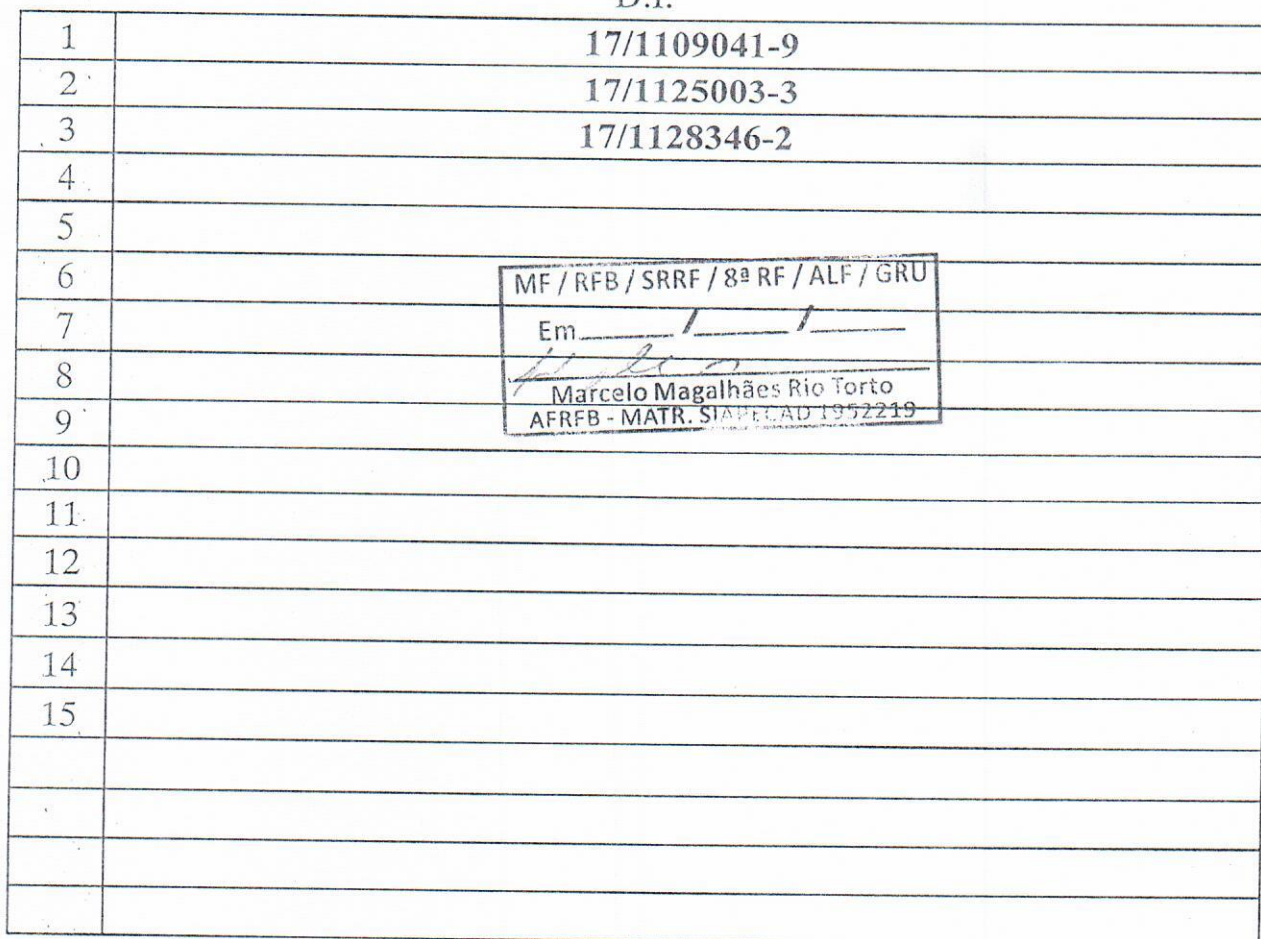 D.I.
1 17/1109041-9
2 17/1125003-3
3 17/1128346-2
4
5
6
7
8
9
10
11
12
13
14
15
MF / RFB / SRRF / 8ª RF / ALF / GRU
Em ______ / ______ / ______
Marcelo Magalhães Rio Torto
AFRFB - MATR. SIAPECAD 1952219